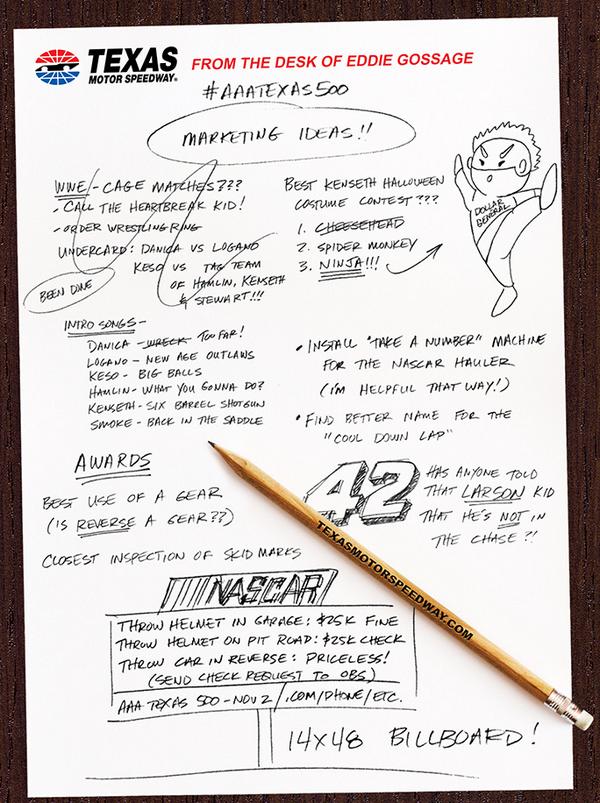 TEXAS
MOTOR SPEEDWAY®
FROM THE DESK OF EDDIE GOSSAGE
#AAATEXAS500
MARKETING IDEAS!!
WWE/- CAGE MATCHES???
- CALL THE HEARTBREAK KID!
- ORDER WRESTLING RING
UNDERCARD: DANICA VS LOGANO
KESO VS TAG TEAM
OF HAMLIN, KENSETH
& STEWART!!!
BEEN DONE
BEST KENSETH HALLOWEEN
COSTUME CONTEST???
1. CHEESEHEAD
2. SPIDER MONKEY
3. NINJA!!!
DOLLAR
GENERAL
INTRO SONGS-
DANICA - WRECK TOO FAR!
LOGANO - NEW AGE OUTLAWS
KESO - BIG BALLS
HAMLIN - WHAT YOU GONNA DO?
KENSETH - SIX BARREL SHOTGUN
SMOKE - BACK IN THE SADDLE
• INSTALL "TAKE A NUMBER" MACHINE
FOR THE NASCAR HAULER
(I'M HELPFUL THAT WAY!)
• FIND BETTER NAME FOR THE
"COOL DOWN LAP"
AWARDS
BEST USE OF A GEAR
(IS REVERSE A GEAR??)
CLOSEST INSPECTION OF SKID MARKS
42
HAS ANYONE TOLD
THAT LARSON KID
THAT HE'S NOT IN
THE CHASE?!
TEXASMOTORSPEEDWAY.COM
NASCAR
THROW HELMET IN GARAGE: $25K FINE
THROW HELMET ON PIT ROAD: $25K CHECK
THROW CAR IN REVERSE: PRICELESS!
(SEND CHECK REQUEST TO OBS)
AAA TEXAS 500 - NOV 2/.COM/PHONE/ETC.
14X48 BILLBOARD!